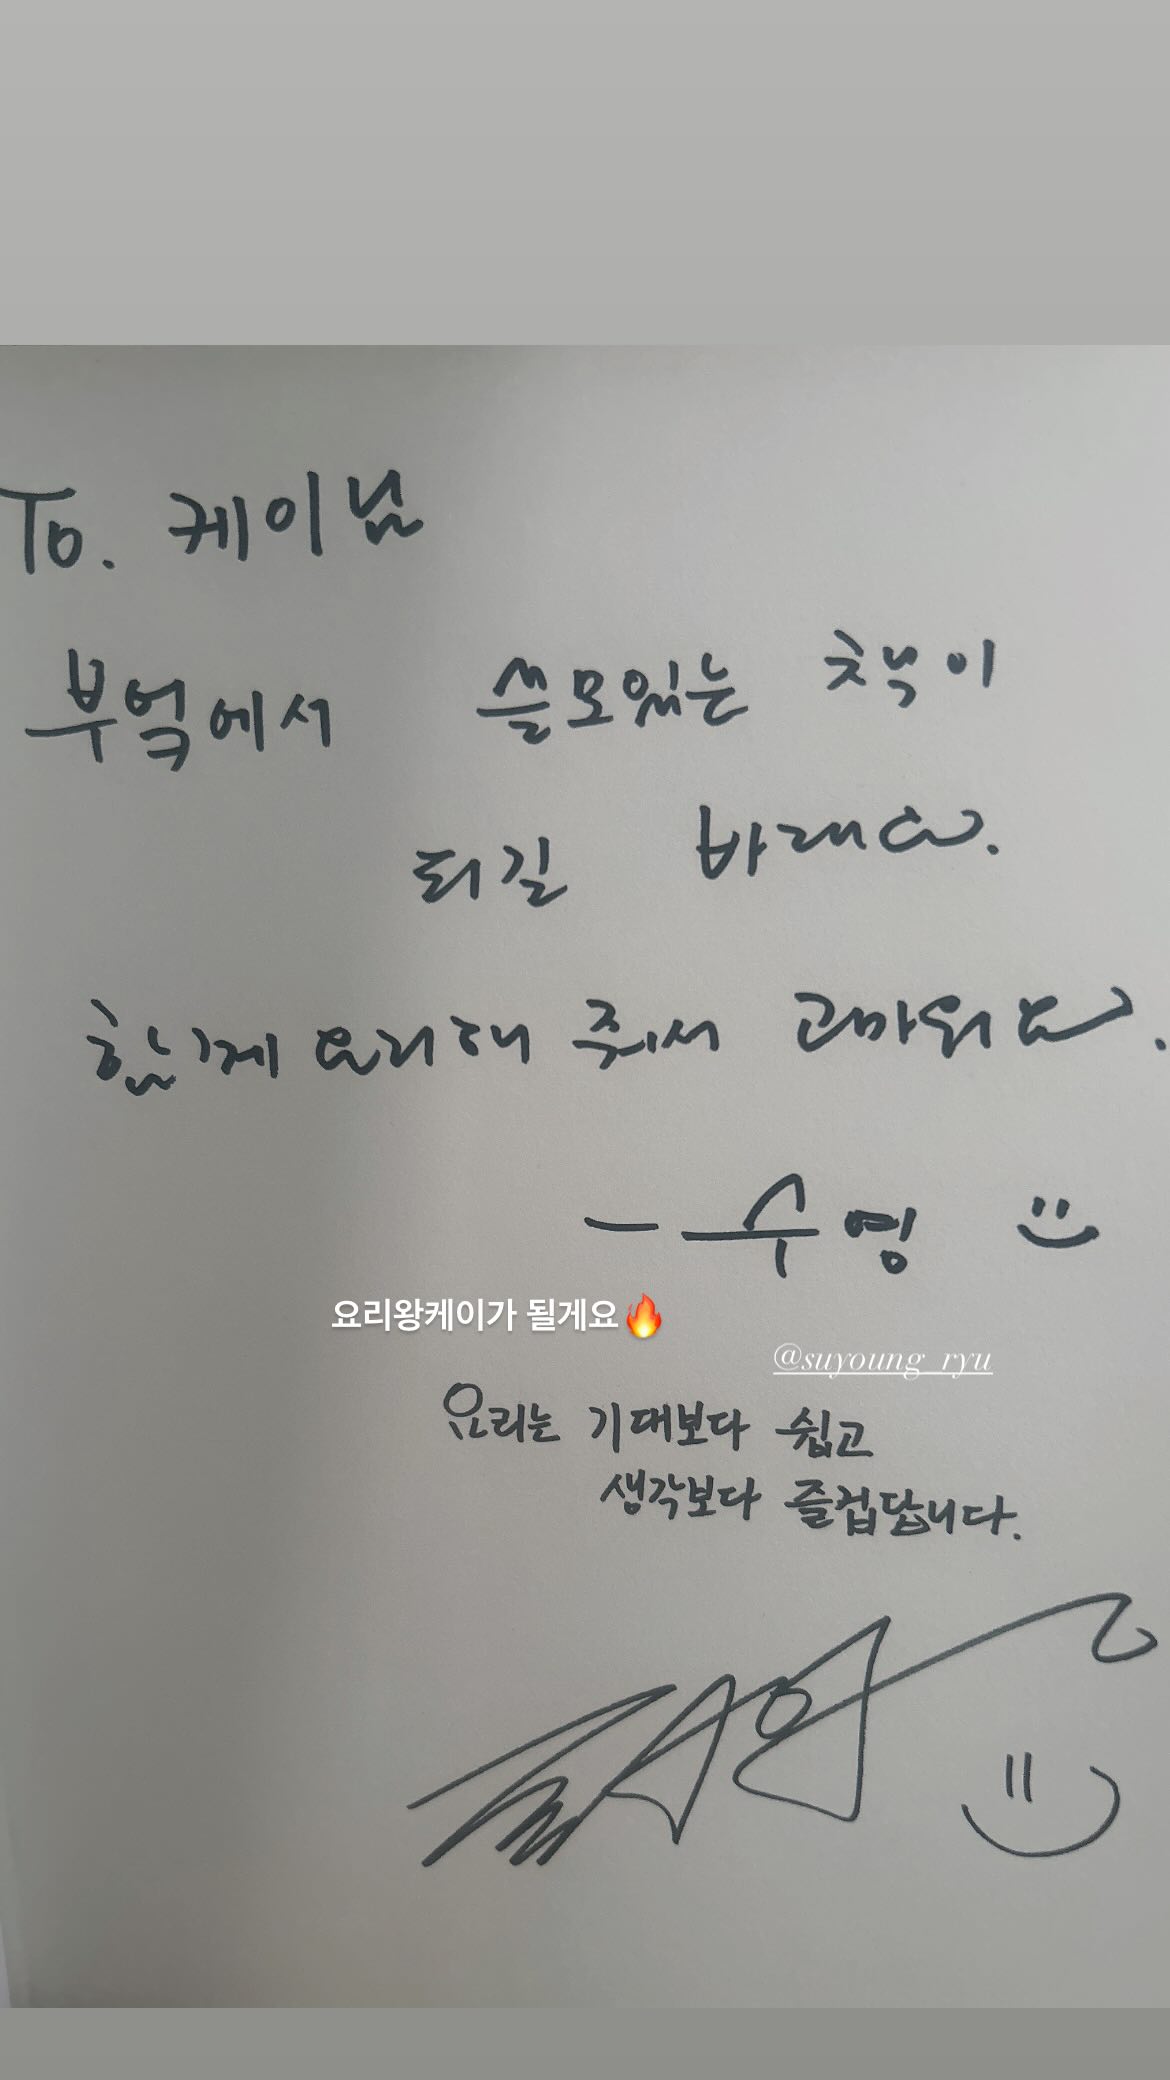 To. 케이님
부엌에서 쓸모있는 책이
되길 바래요.
함께 요리해 줘서 고마워요.
— 수영
요리왕케이가 될게요🔥
@suyoung_ryu
요리는 기대보다 쉽고
생각보다 즐겁답니다.